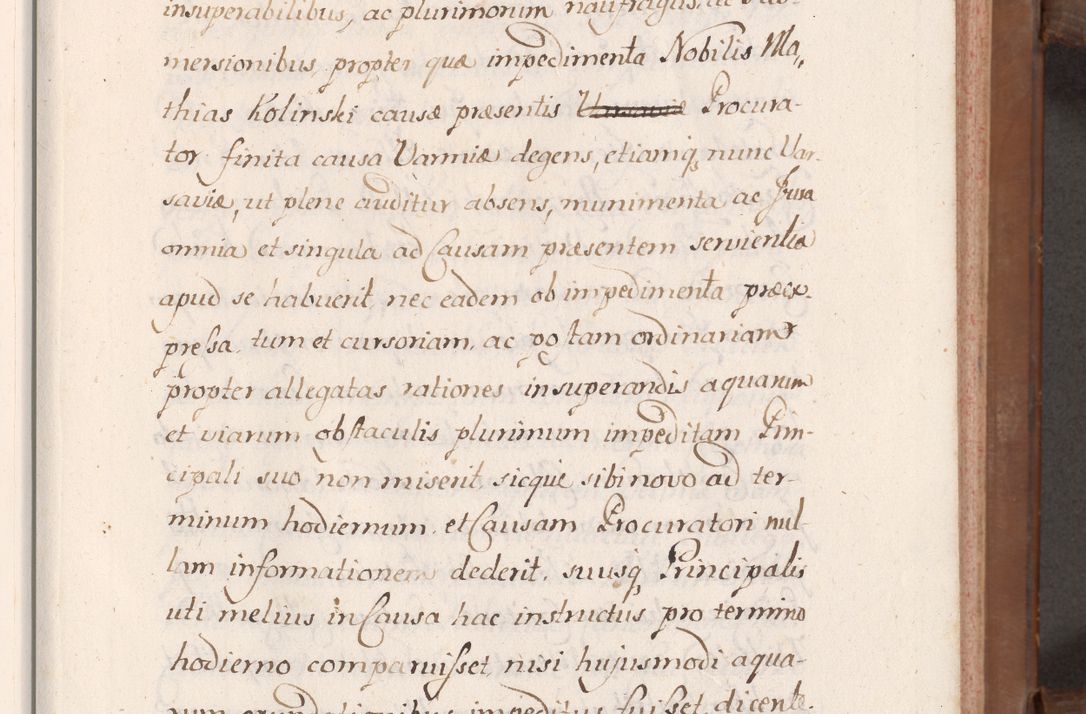 insuperabilibus, ac plurimorum naufragus, ac sub-
mersionibus, propter quæ impedimenta Nobilis Ma,
thias Kolinski causæ præsentis Procura-
tor finita causa Varmiæ degens, etiamq nunc Var-
saviæ, ut plene auditur absens, munimenta ac Jura
omnia et singula ad Causam præsentem servientia
apud se habuerit, nec eadem ob impedimenta præex-
pressa, tum et cursoriam, ac postam ordinariam
propter allegatas rationes insuperandis aquarum
et viarum obstaculis plurimum impeditam Prin-
cipali suo non miserit, sicque sibi novo ad ter-
minum hodiernum, et Causam Procuratori nul-
lam informationem dederit, suusq Principalis
uti melius in Causa hac instructus pro termino
hodierno comparuisset, nisi hujusmodi aqua-
rum exundationibus impeditus fuisset, dicente.